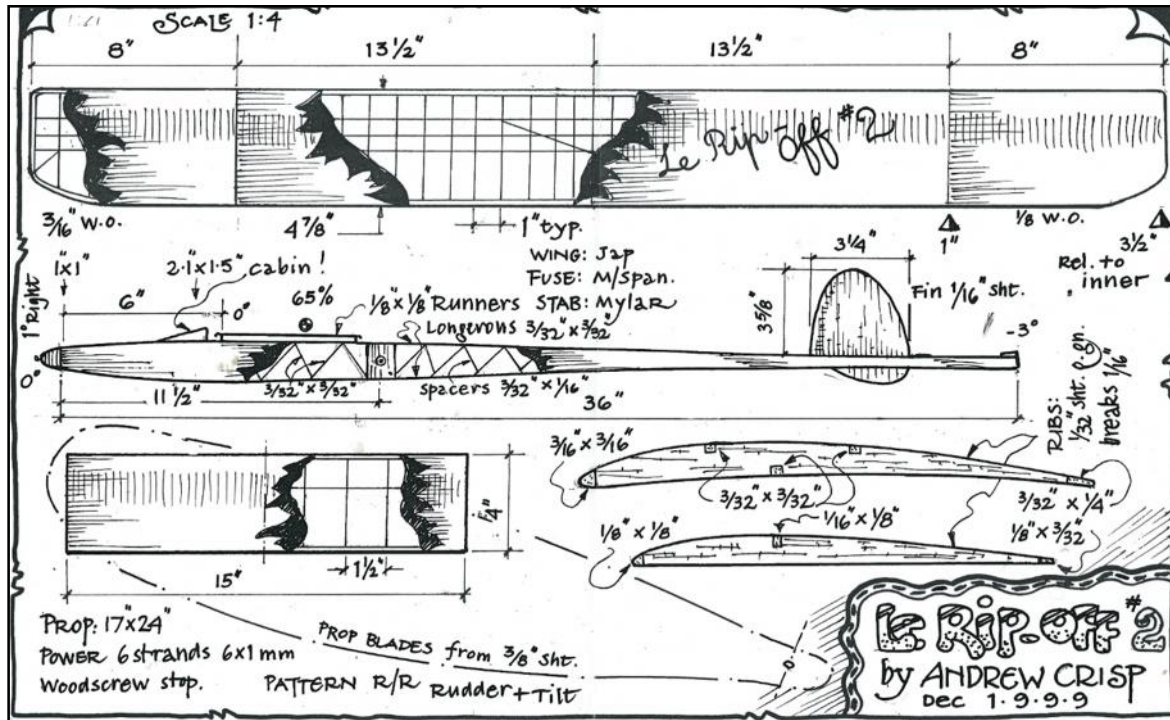 SCALE 1:4
8" 13½" 13½" 8"
Le Rip-Off #2
3/16" W.O. 4⅞" 1" typ. ⅛ W.O.
1" 3½"
Rel. to
inner
WING: Jap
FUSE: M/span.
STAB: Mylar
1"x1" 2·1x1·5" cabin!
1° Right
6" 0° 65%
⅛"x⅛" Runners
Longerons 3/32"x3/32"
3¼"
3⅝"
Fin 1/16" sht.
-3°
0°
11½" 3/32"x3/32" spacers 3/32"x1/16"
36"
RIBS:
1/32" sht.
breaks 1/16"
3/16"x3/16"
3/32"x3/32" 3/32"x¼"
4"
⅛"x⅛" 1/16"x⅛" ⅛"x3/32"
15" 1½"
PROP: 17"x24"
POWER 6 strands 6x1mm
Woodscrew stop.
PROP BLADES from ⅜" sht.
PATTERN R/R Rudder+Tilt
Le Rip-Off #2
by ANDREW CRISP
DEC 1·9·9·9